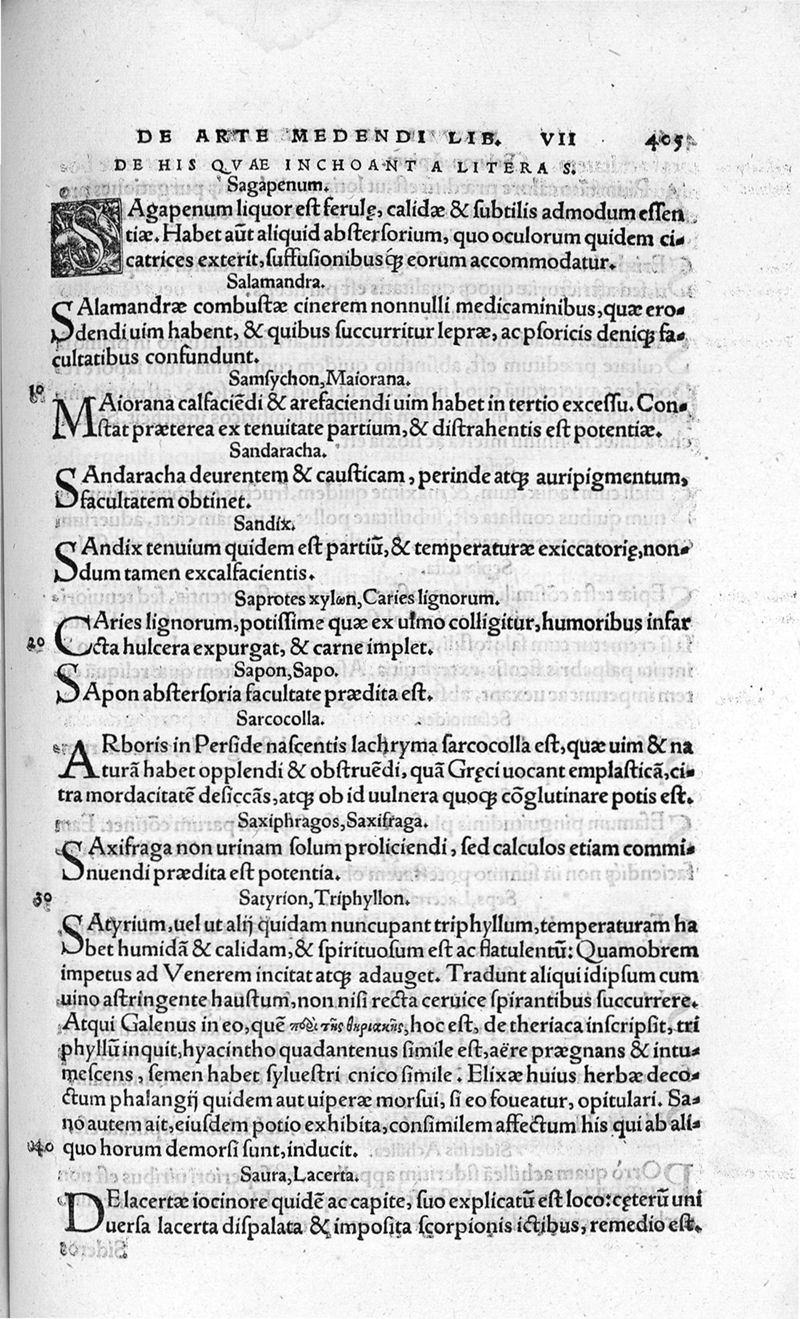 DE ARTE MEDENDI LIB. VII 405
DE HIS QVAE INCHOANT A LITERA S.
Sagapenum.
SAgapenum liquor est ferulę, calidæ & subtilis admodum essen
tiæ. Habet aūt aliquid abstersorium, quo oculorum quidem ci-
catrices exterit, suffusionibusq́; eorum accommodatur.
Salamandra.
SAlamandræ combustæ cinerem nonnulli medicaminibus, quæ ero-
dendi uim habent, & quibus succurritur lepræ, ac psoricis deniq; fa-
cultatibus confundunt.
Samsychon, Maiorana.
10 MAiorana calfaciēdi & arefaciendi uim habet in tertio excessu. Con-
stat præterea ex tenuitate partium, & distrahentis est potentiæ.
Sandaracha.
SAndaracha deurentem & causticam, perinde atq; auripigmentum,
facultatem obtinet.
Sandix.
SAndix tenuium quidem est partiū, & temperaturæ exiccatorię, non-
dum tamen excalfacientis.
Saprotes xylωn, Caries lignorum.
CAries lignorum, potissime quæ ex ulmo colligitur, humoribus infar
20 cta hulcera expurgat, & carne implet.
Sapon, Sapo.
SApon abstersoria facultate prædita est.
Sarcocolla.
ARboris in Perside nascentis lachryma sarcocolla est, quæ uim & na
turā habet opplendi & obstruēdi, quā Gręci uocant emplasticā, ci-
tra mordacitatē desiccās, atq; ob id uulnera quoq; cōglutinare potis est.
Saxiphragos, Saxifraga.
SAxifraga non urinam solum proliciendi, sed calculos etiam commi-
nuendi prædita est potentia.
30 Satyrion, Triphyllon.
SAtyrium, uel ut alij quidam nuncupant triphyllum, temperaturam ha
bet humidā & calidam, & spirituosum est ac flatulentū: Quamobrem
impetus ad Venerem incitat atq; adauget. Tradunt aliqui idipsum cum
uino astringente haustum, non nisi recta ceruice spirantibus succurrere.
Atqui Galenus in eo, quē πρὸς τῆς θηριακῆς, hoc est, de theriaca inscripsit, tri
phyllū inquit, hyacincho quadantenus simile est, aëre prægnans & intu-
mescens, semen habet syluestri cnico simile. Elixæ huius herbæ deco-
ctum phalangij quidem aut uiperæ morsui, si eo foueatur, opitulari. Sa-
no autem ait, eiusdem potio exhibita, consimilem affectum his qui ab ali-
40 quo horum demorsi sunt, inducit.
Saura, Lacerta.
DE lacertæ iocinore quidē ac capite, suo explicatū est loco: cęterū uni
uersa lacerta dispalata & imposita scorpionis ictibus, remedio est.